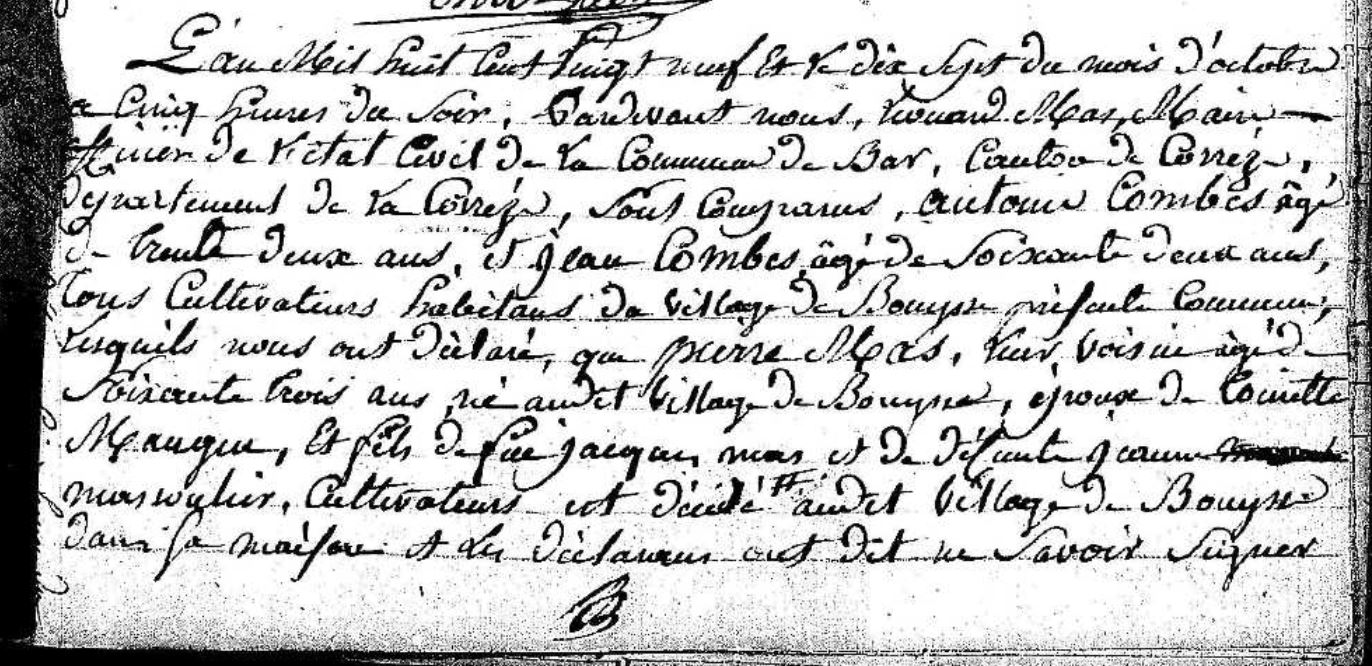 L'an Mil huit Cent vingt neuf Et le dix Sept du mois d'octobre
a Cinq heures du Soir, Pardevant nous, Mas, Maire
officier de l'état Civil de La Commune de Bar, Canton de Corrèze,
département de La Corrèze, Sont Comparus, antoine Combes âgé
de trente deux ans, et Jean Combes, âgé de Soixante deux ans,
tous Cultivateurs habitans du village de Bouysse présente Commune,
Lesquels nous ont déclaré, que pierre Mas, leur voisin âgé de
Soixante trois ans, né audit village de Bouysse, époux de Toinette
Maugen, Et fils de feu jacques mas et de défunte jeanne
masoulier, Cultivateurs est décédé # audit village de Bouysse
dans sa maison et Les déclarans ont dit ne Savoir Signer